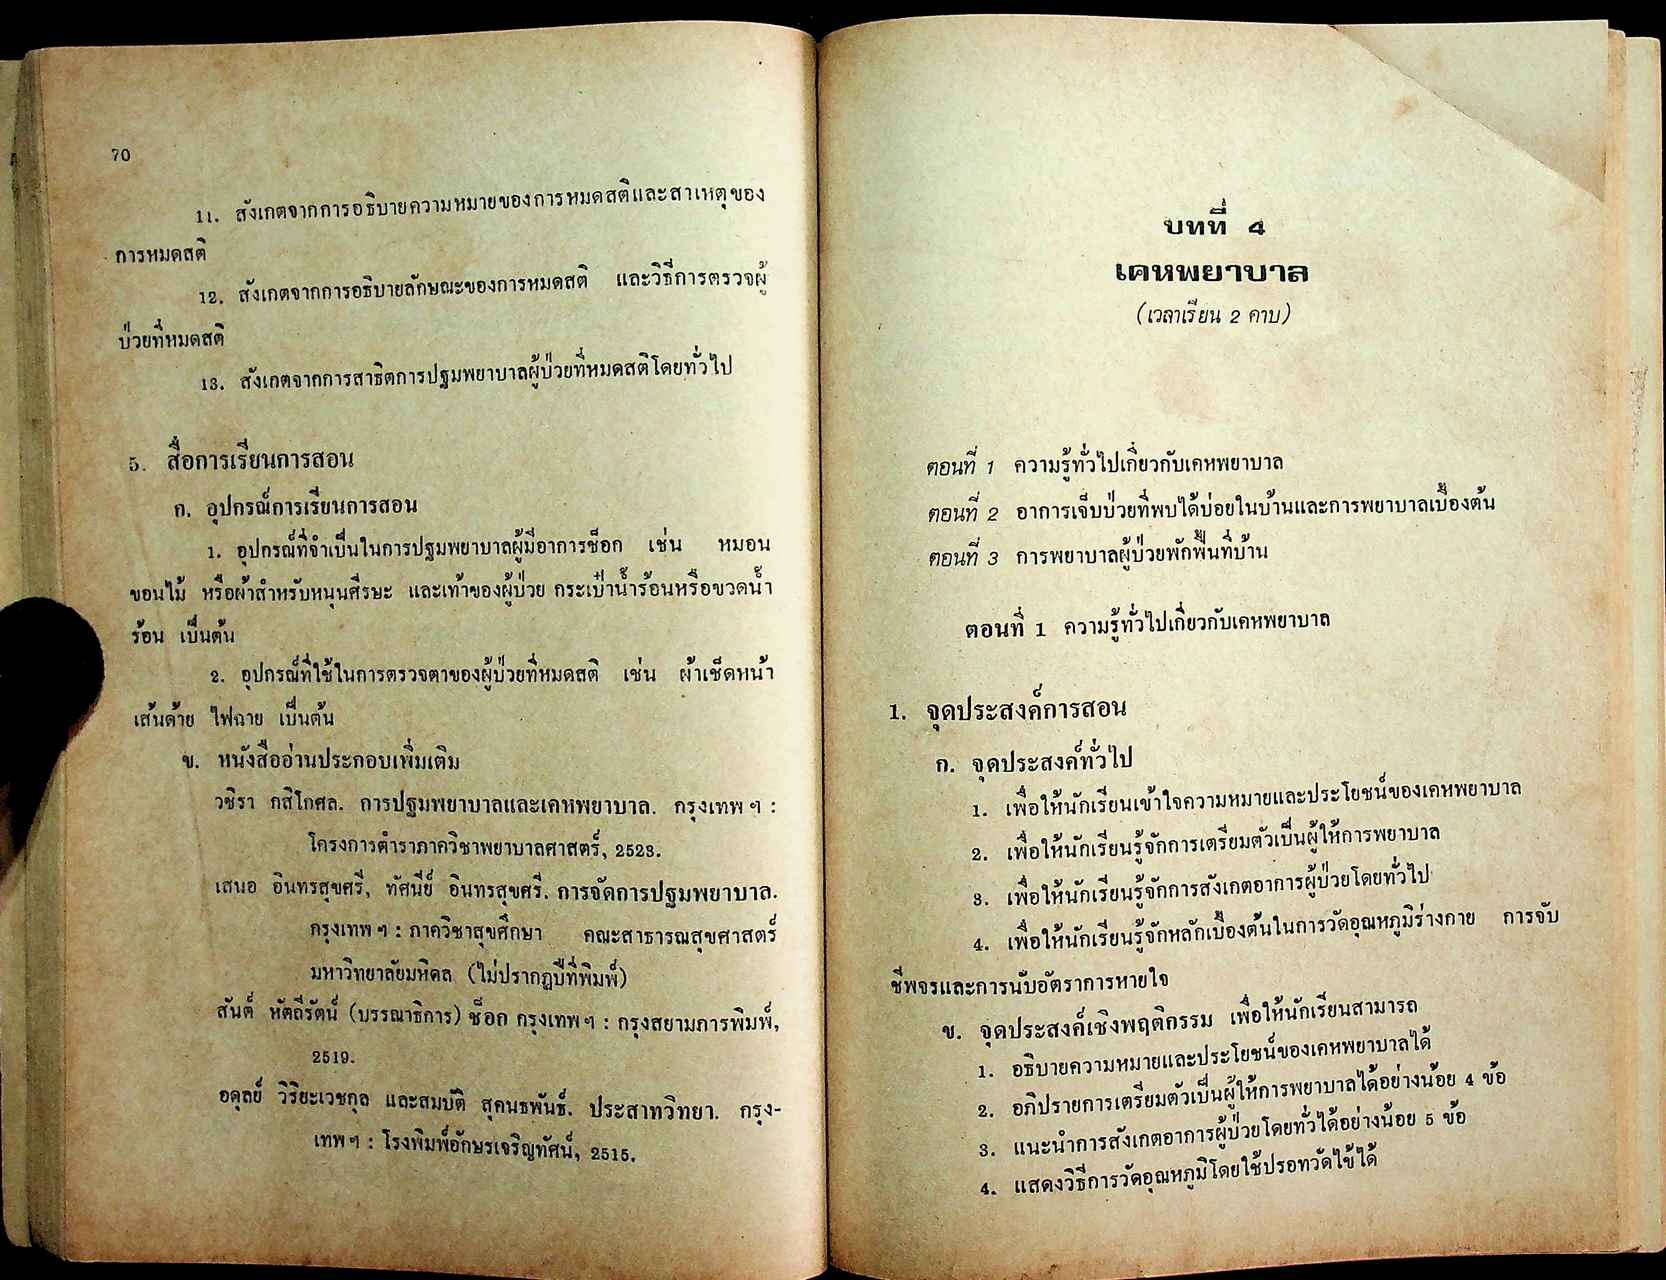 70
11. สังเกตจากการอธิบายความหมายของการหมดสติและสาเหตุของ
การหมดสติ
12. สังเกตจากการอธิบายลักษณะของการหมดสติ และวิธีการตรวจผู้
ป่วยที่หมดสติ
13. สังเกตจากการสาธิตการปฐมพยาบาลผู้ป่วยที่หมดสติโดยทั่วไป
5. สื่อการเรียนการสอน
ก. อุปกรณ์การเรียนการสอน
1. อุปกรณ์ที่จำเป็นในการปฐมพยาบาลผู้มีอาการช็อก เช่น หมอน
ขอนไม้ หรือผ้าสำหรับหนุนศีรษะ และเท้าของผู้ป่วย กระเป๋าน้ำร้อนหรือขวดน้ำ
ร้อน เป็นต้น
2. อุปกรณ์ที่ใช้ในการตรวจตาของผู้ป่วยที่หมดสติ เช่น ผ้าเช็ดหน้า
เส้นด้าย ไฟฉาย เป็นต้น
ข. หนังสืออ่านประกอบเพิ่มเติม
วชิรา กสิโกศล. การปฐมพยาบาลและเคหพยาบาล. กรุงเทพ ฯ :
โครงการตำราภาควิชาพยาบาลศาสตร์, 2523.
เสนอ อินทรสุขศรี, ทัศนีย์ อินทรสุขศรี. การจัดการปฐมพยาบาล.
กรุงเทพ ฯ : ภาควิชาสุขศึกษา คณะสาธารณสุขศาสตร์
มหาวิทยาลัยมหิดล (ไม่ปรากฏปีที่พิมพ์)
สันต์ หัตถีรัตน์ (บรรณาธิการ) ช็อก กรุงเทพ ฯ : กรุงสยามการพิมพ์,
2519.
อดุลย์ วิริยะเวชกุล และสมบัติ สุคนธพันธ์. ประสาทวิทยา. กรุง-
เทพ ฯ : โรงพิมพ์อักษรเจริญทัศน์, 2515.
บทที่ 4
เคหพยาบาล
(เวลาเรียน 2 คาบ)
ตอนที่ 1 ความรู้ทั่วไปเกี่ยวกับเคหพยาบาล
ตอนที่ 2 อาการเจ็บป่วยที่พบได้บ่อยในบ้านและการพยาบาลเบื้องต้น
ตอนที่ 3 การพยาบาลผู้ป่วยพักฟื้นที่บ้าน
ตอนที่ 1 ความรู้ทั่วไปเกี่ยวกับเคหพยาบาล
1. จุดประสงค์การสอน
ก. จุดประสงค์ทั่วไป
1. เพื่อให้นักเรียนเข้าใจความหมายและประโยชน์ของเคหพยาบาล
2. เพื่อให้นักเรียนรู้จักการเตรียมตัวเป็นผู้ให้การพยาบาล
3. เพื่อให้นักเรียนรู้จักการสังเกตอาการผู้ป่วยโดยทั่วไป
4. เพื่อให้นักเรียนรู้จักหลักเบื้องต้นในการวัดอุณหภูมิร่างกาย การจับ
ชีพจรและการนับอัตราการหายใจ
ข. จุดประสงค์เชิงพฤติกรรม เพื่อให้นักเรียนสามารถ
1. อธิบายความหมายและประโยชน์ของเคหพยาบาลได้
2. อภิปรายการเตรียมตัวเป็นผู้ให้การพยาบาลได้อย่างน้อย 4 ข้อ
3. แนะนำการสังเกตอาการผู้ป่วยโดยทั่วได้อย่างน้อย 5 ข้อ
4. แสดงวิธีการวัดอุณหภูมิโดยใช้ปรอทวัดไข้ได้